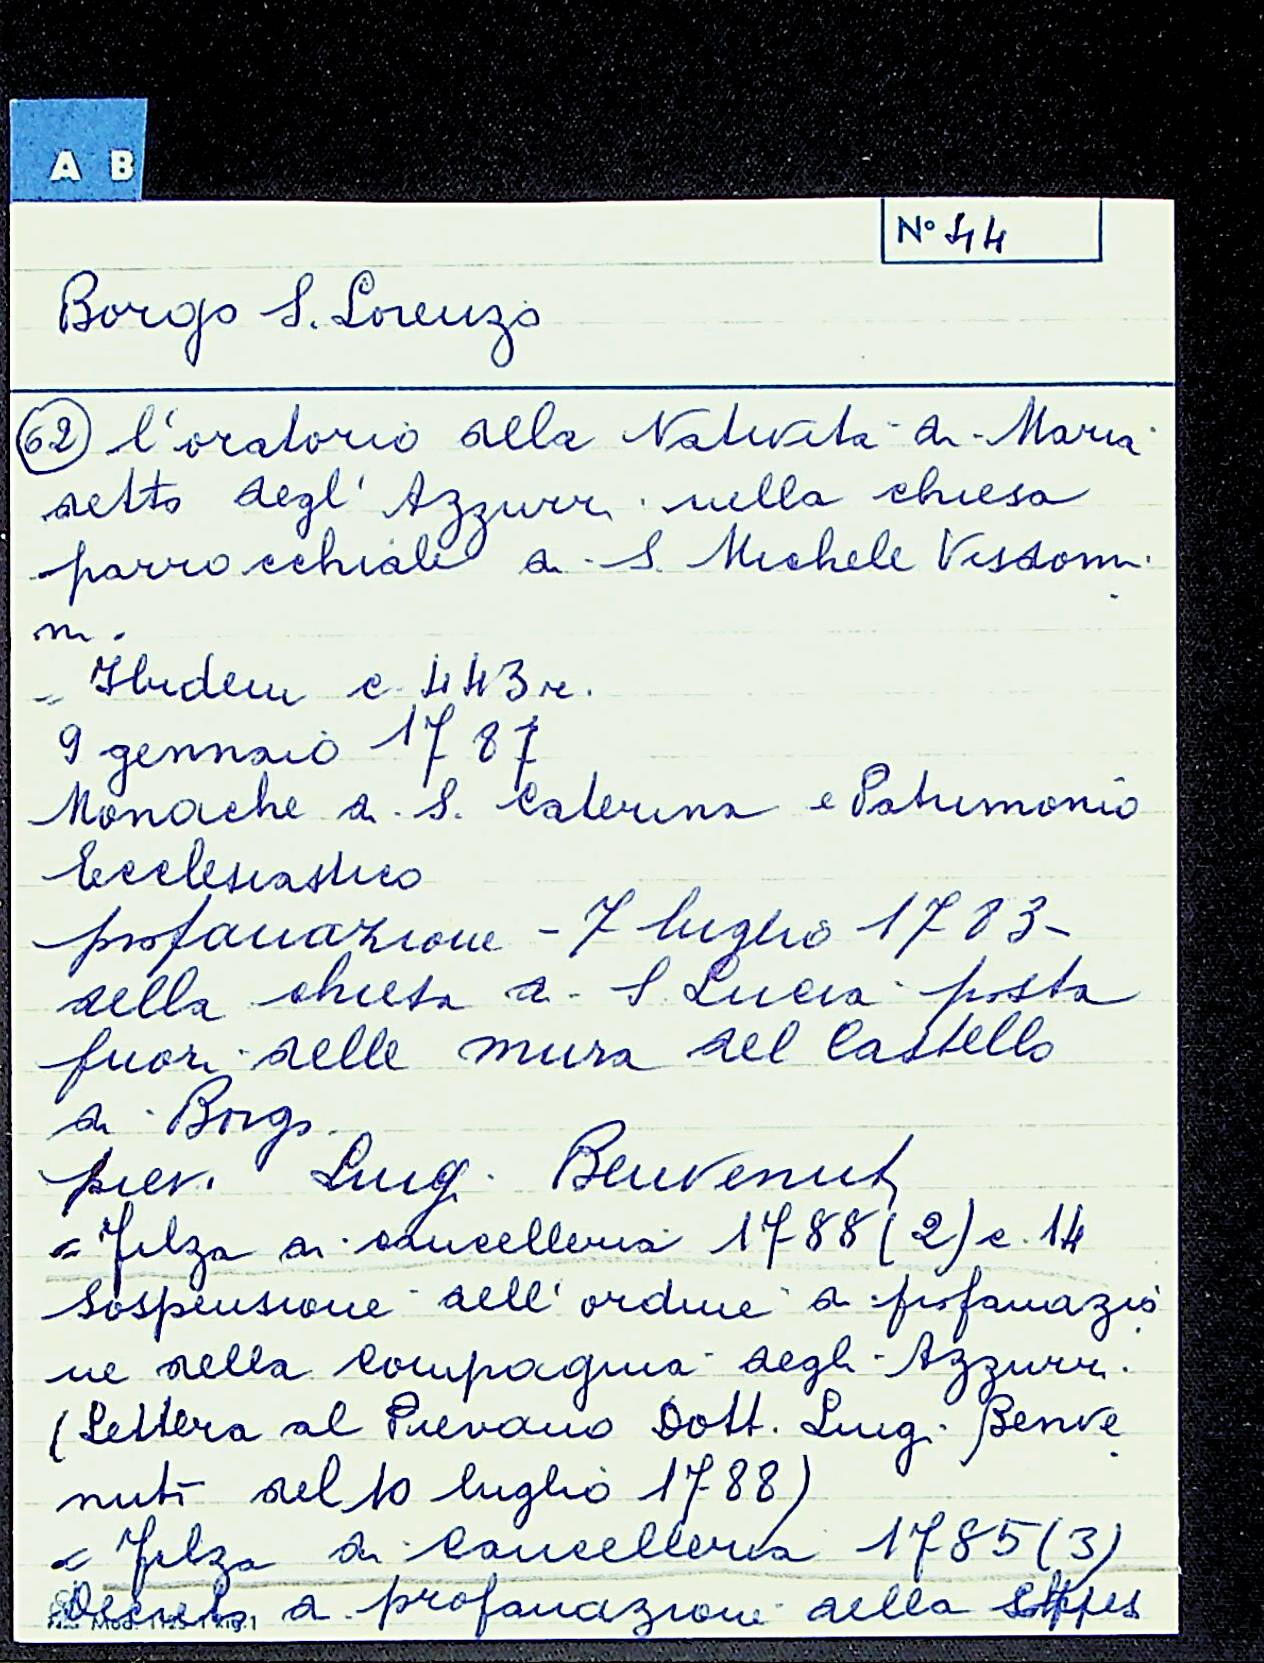 A B
N° 44
Borgo S. Lorenzo
62 l'oratorio della Natività di Maria
detto degl' Azzurri nella chiesa
parrocchiale di S. Michele Visdomi
ni.
= Ibidem c. 443r.
9 gennaio 1787
Monache di S. Caterina e Patrimonio
Ecclesiastico
profanazione - 7 luglio 1783 -
della chiesa di S. Lucia posta
fuori delle mura del Castello
di Borgo.
piev. Luigi Benvenuti
= Filza di cancelleria 1788 (2) c. 14
Sospensione dell' ordine di profanazio
ne della Compagnia degli Azzurri.
(Lettera al Pievano Dott. Luigi Benve
nuti del 10 luglio 1788)
= Filza di Cancelleria 1785 (3)
Decreto di profanazione della